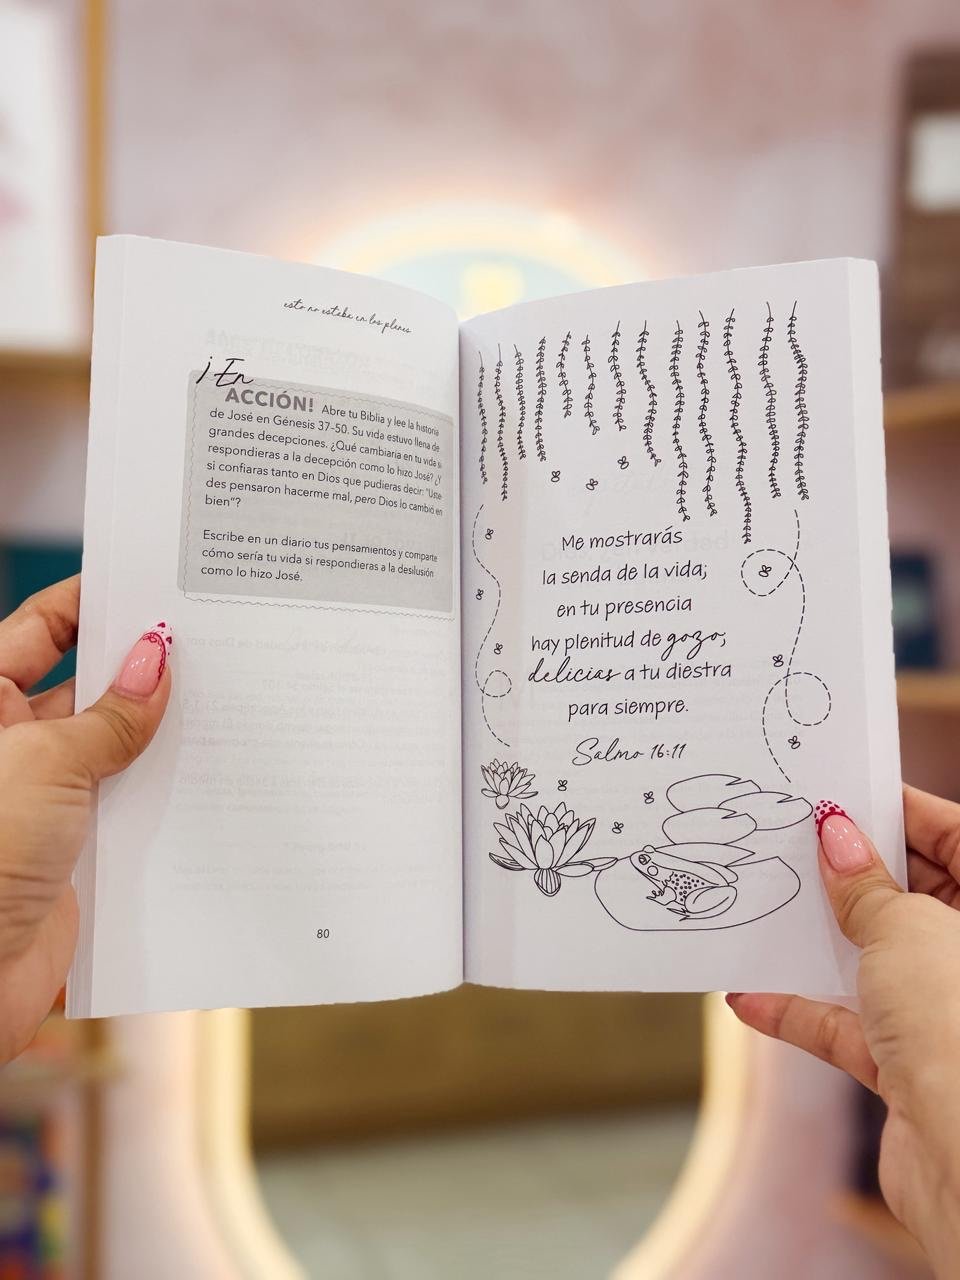 esto no estaba en los planes
¡En
ACCIÓN! Abre tu Biblia y lee la historia
de José en Génesis 37-50. Su vida estuvo llena de
grandes decepciones. ¿Qué cambiaría en tu vida si
respondieras a la decepción como lo hizo José? ¿Y
si confiaras tanto en Dios que pudieras decir: "Uste-
des pensaron hacerme mal, pero Dios lo cambió en
bien"?
Escribe en un diario tus pensamientos y comparte
cómo sería tu vida si respondieras a la desilusión
como lo hizo José.
80
Me mostrarás
la senda de la vida;
en tu presencia
hay plenitud de gozo;
delicias a tu diestra
para siempre.
Salmo 16:11